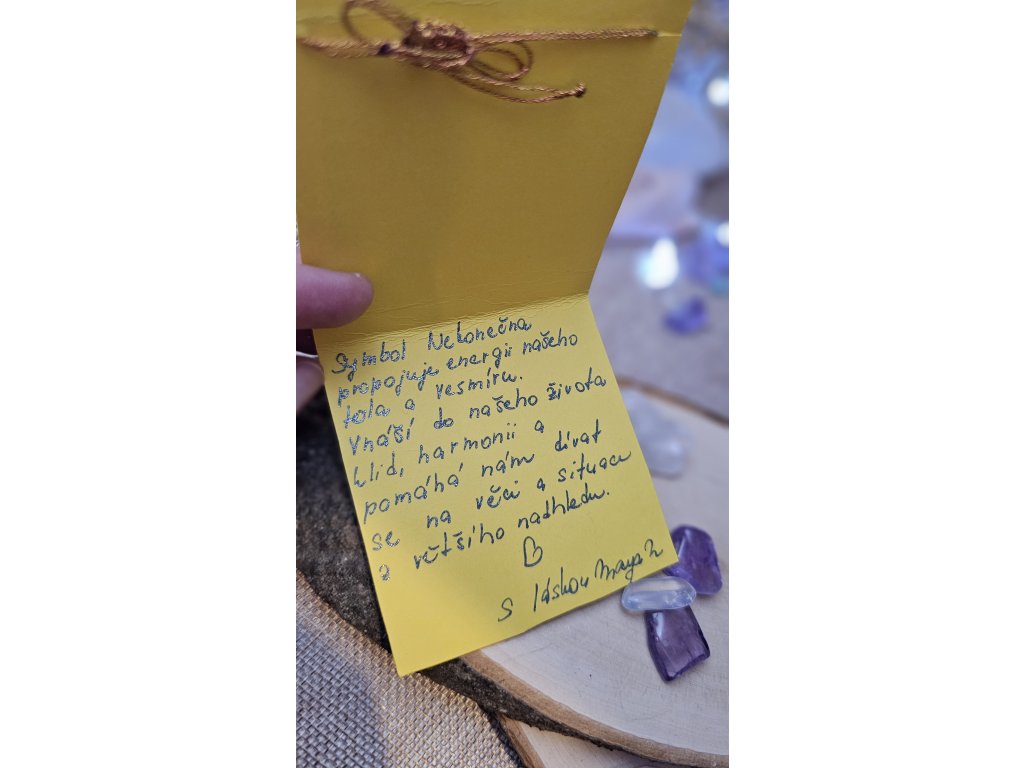 Symbol Nekonečna
propojuje energii našeho
těla a vesmíru.
Vnáší do našeho života
klid, harmonii a
pomáhá nám dívat
se na věci a situace
z většího nadhledu.
S láskou